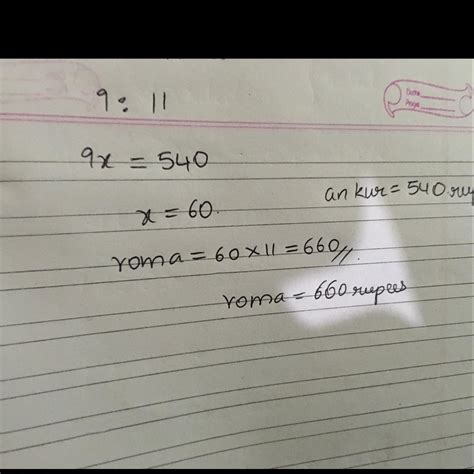 Date
Page
9 : 11
9x = 540
ankur = 540 rup
x = 60.
roma = 60 x 11 = 660//
roma = 660 rupees